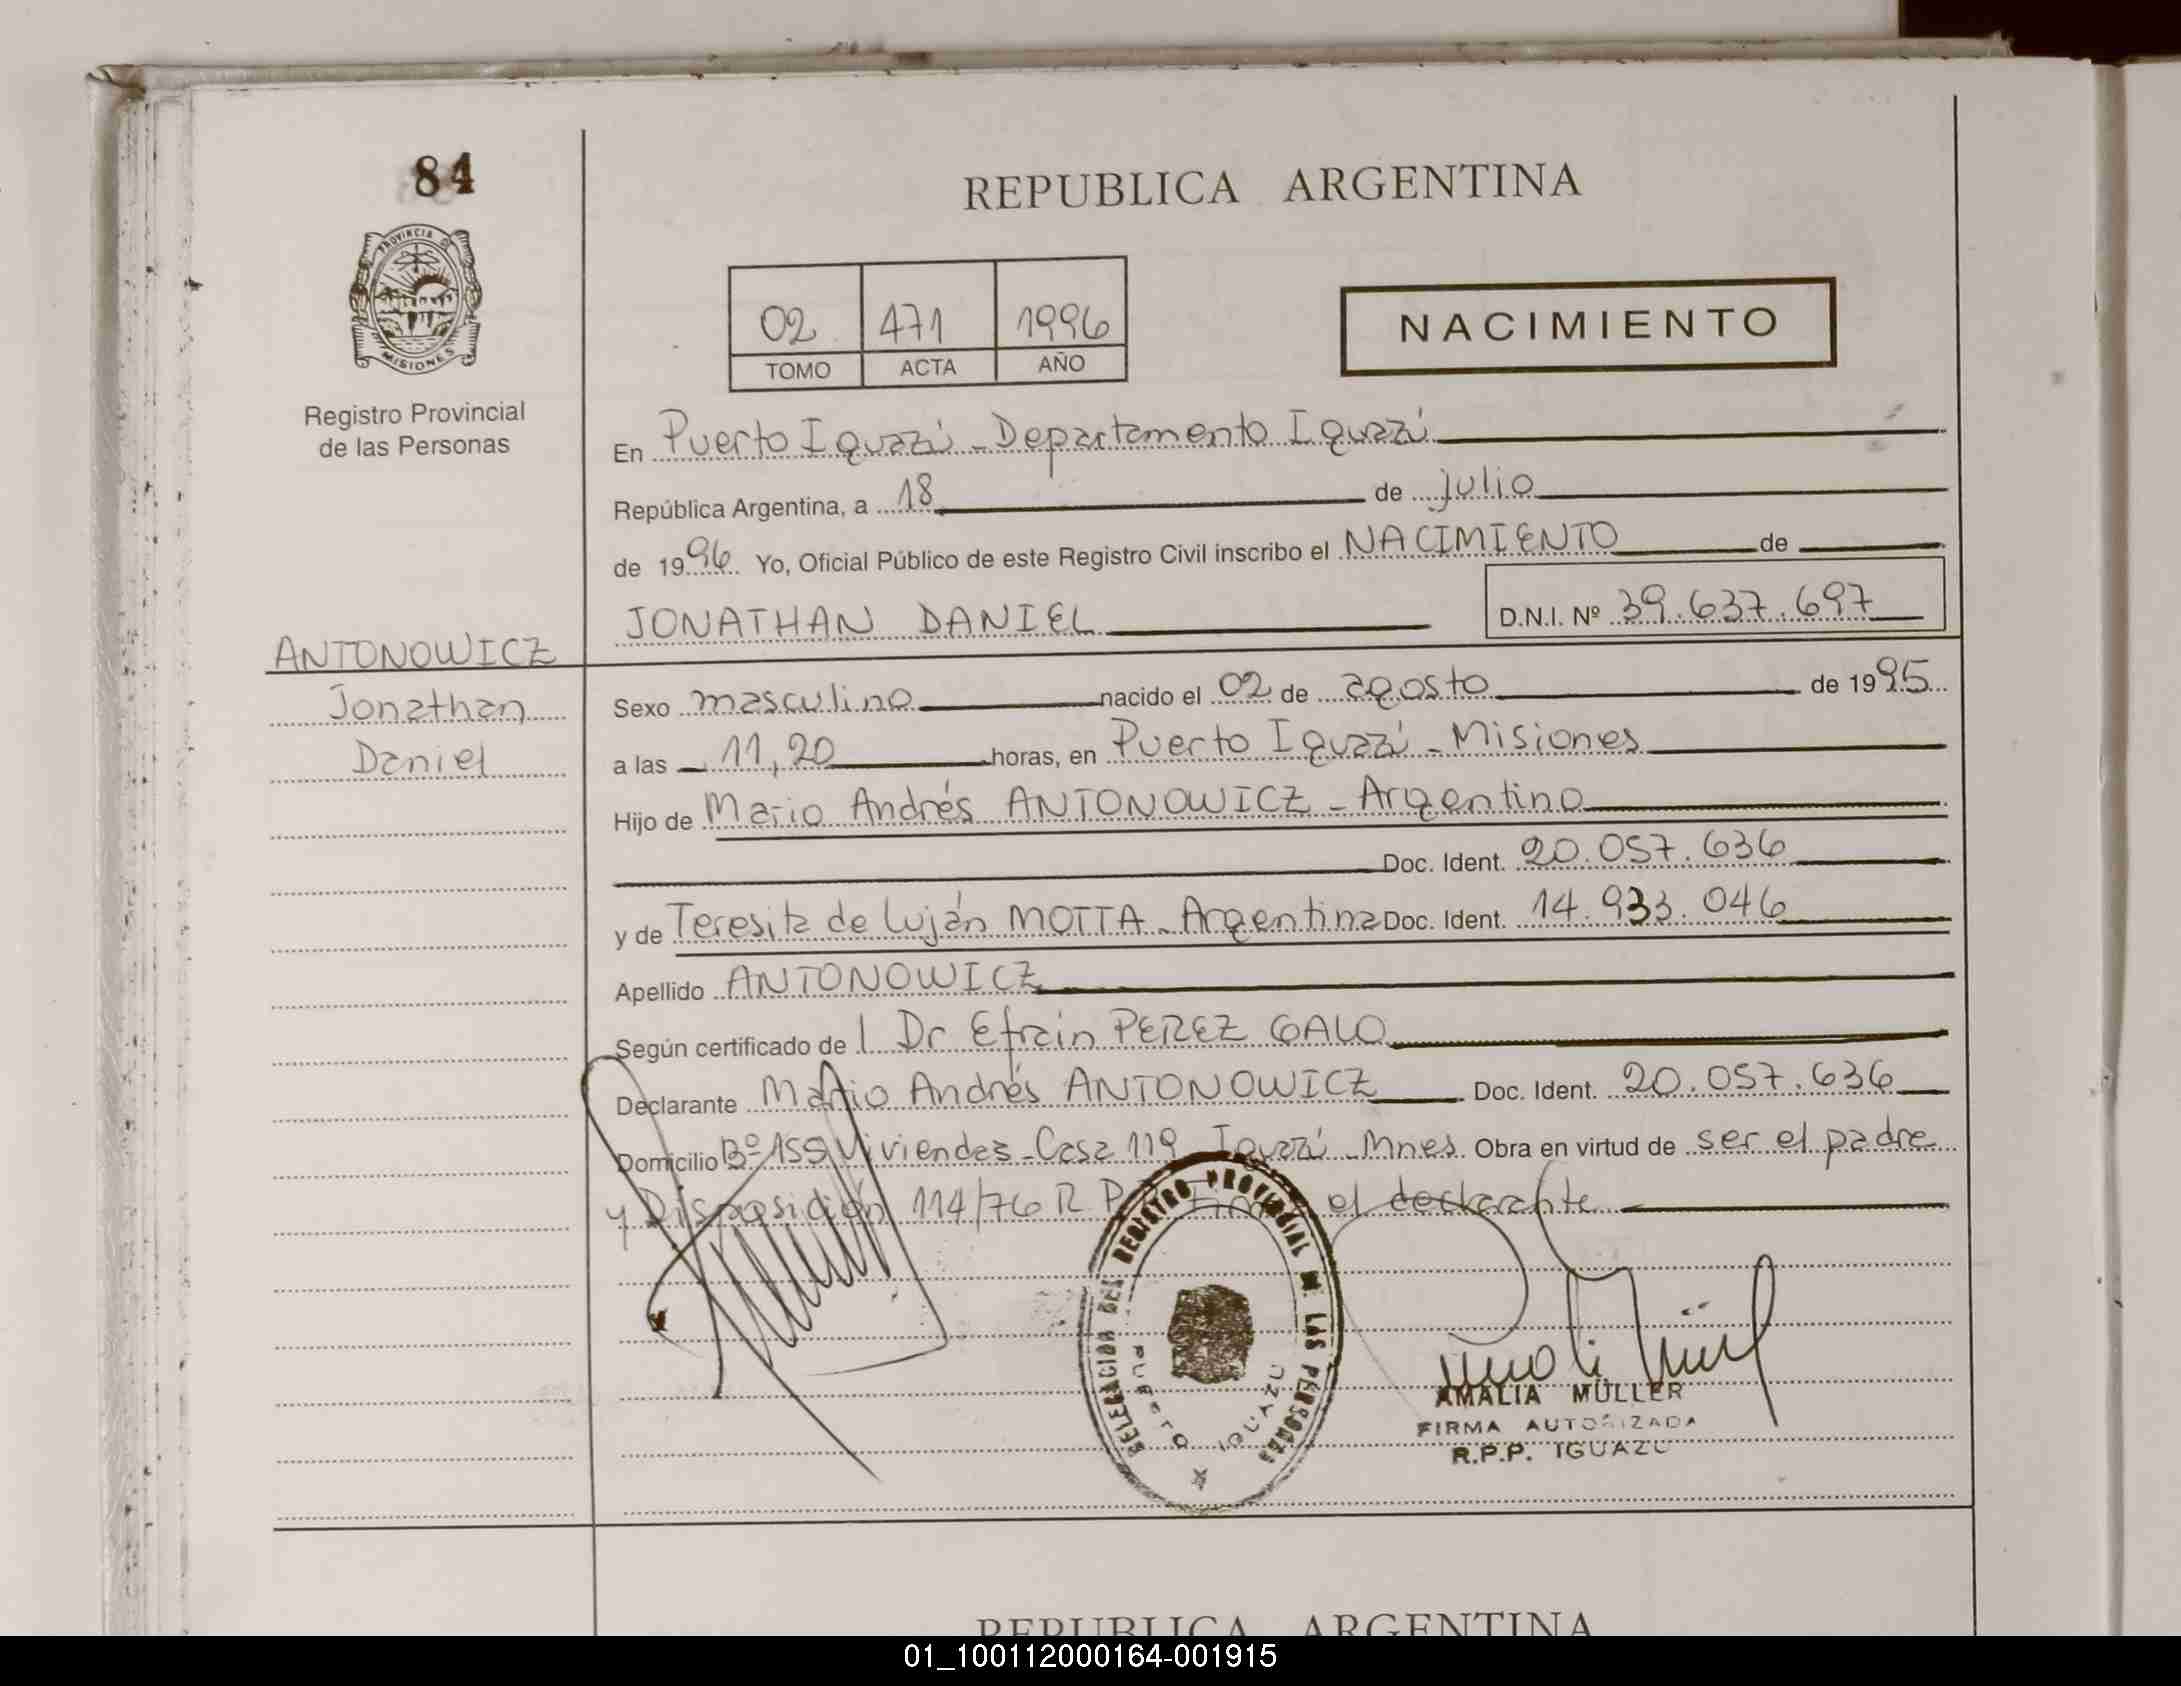 84
REPUBLICA ARGENTINA
PROVINCIA DE
MISIONES
02 471 1996
TOMO ACTA AÑO
NACIMIENTO
Registro Provincial
de las Personas
En Puerto Iguazú - Departamento Iguazú
República Argentina, a 18 de julio
de 1996. Yo, Oficial Público de este Registro Civil inscribo el NACIMIENTO de
JONATHAN DANIEL D.N.I. Nº 39.637.697
ANTONOWICZ
Jonathan
Daniel
Sexo masculino nacido el 02 de agosto de 1995
a las 11,20 horas, en Puerto Iguazú - Misiones
Hijo de Mario Andrés ANTONOWICZ - Argentino
Doc. Ident. 20.057.636
y de Teresita de Luján MOTTA - Argentina Doc. Ident. 14.933.046
Apellido ANTONOWICZ
Según certificado de l Dr Efrain PEREZ GALO
Declarante Mario Andrés ANTONOWICZ Doc. Ident. 20.057.636
Domicilio Bº 159 Viviendas - Casa 119 Iguazú - Mnes. Obra en virtud de ser el padre
y Disposición 114/76 R P P Firma el declarante
DELEGACION DEL REGISTRO PROVINCIAL DE LAS PERSONAS
PUERTO IGUAZU
AMALIA MÜLLER
FIRMA AUTORIZADA
R.P.P. IGUAZU
REPUBLICA ARGENTINA
01_100112000164-001915